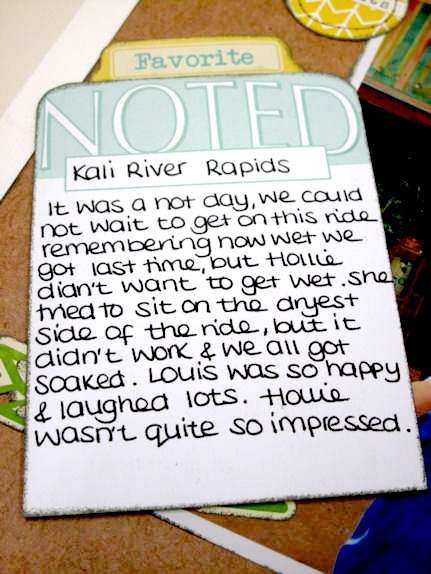 Favorite
NOTED
Kali River Rapids
It was a hot day, we could
not wait to get on this ride
remembering how wet we
got last time, but Hollie
didn't want to get wet. She
tried to sit on the dryest
side of the ride, but it
didn't work & we all got
soaked. Louis was so happy
& laughed lots. Hollie
wasn't quite so impressed.